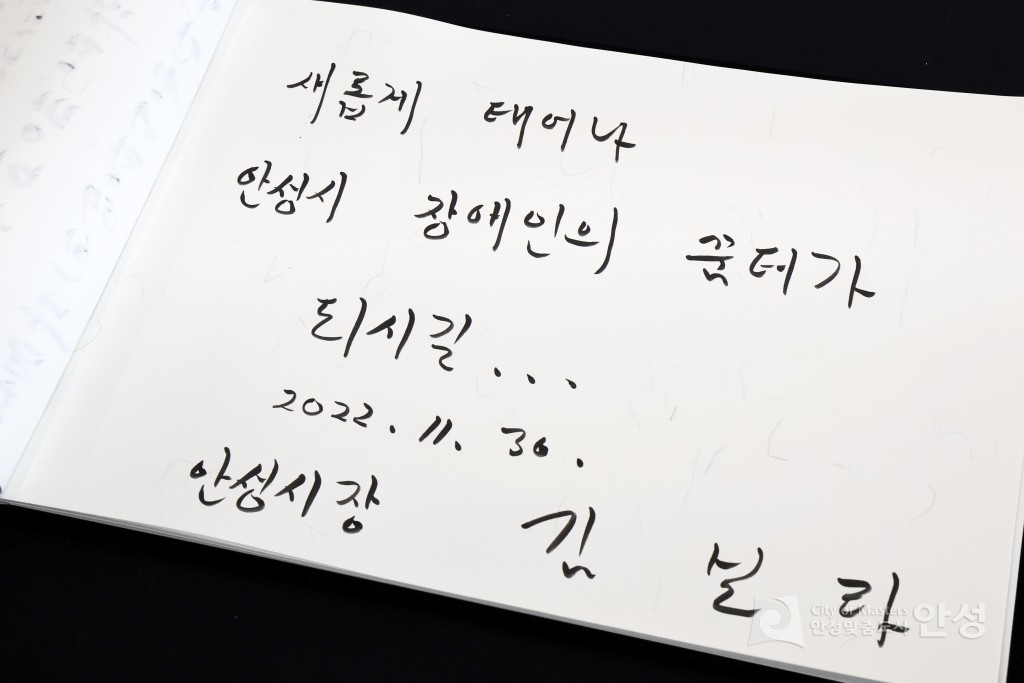 새롭게 태어나
안성시 장애인의 꿈터가
되시길...
2022. 11. 30.
안성시장 김 보 라
City of Masters
안성맞춤도시 안성